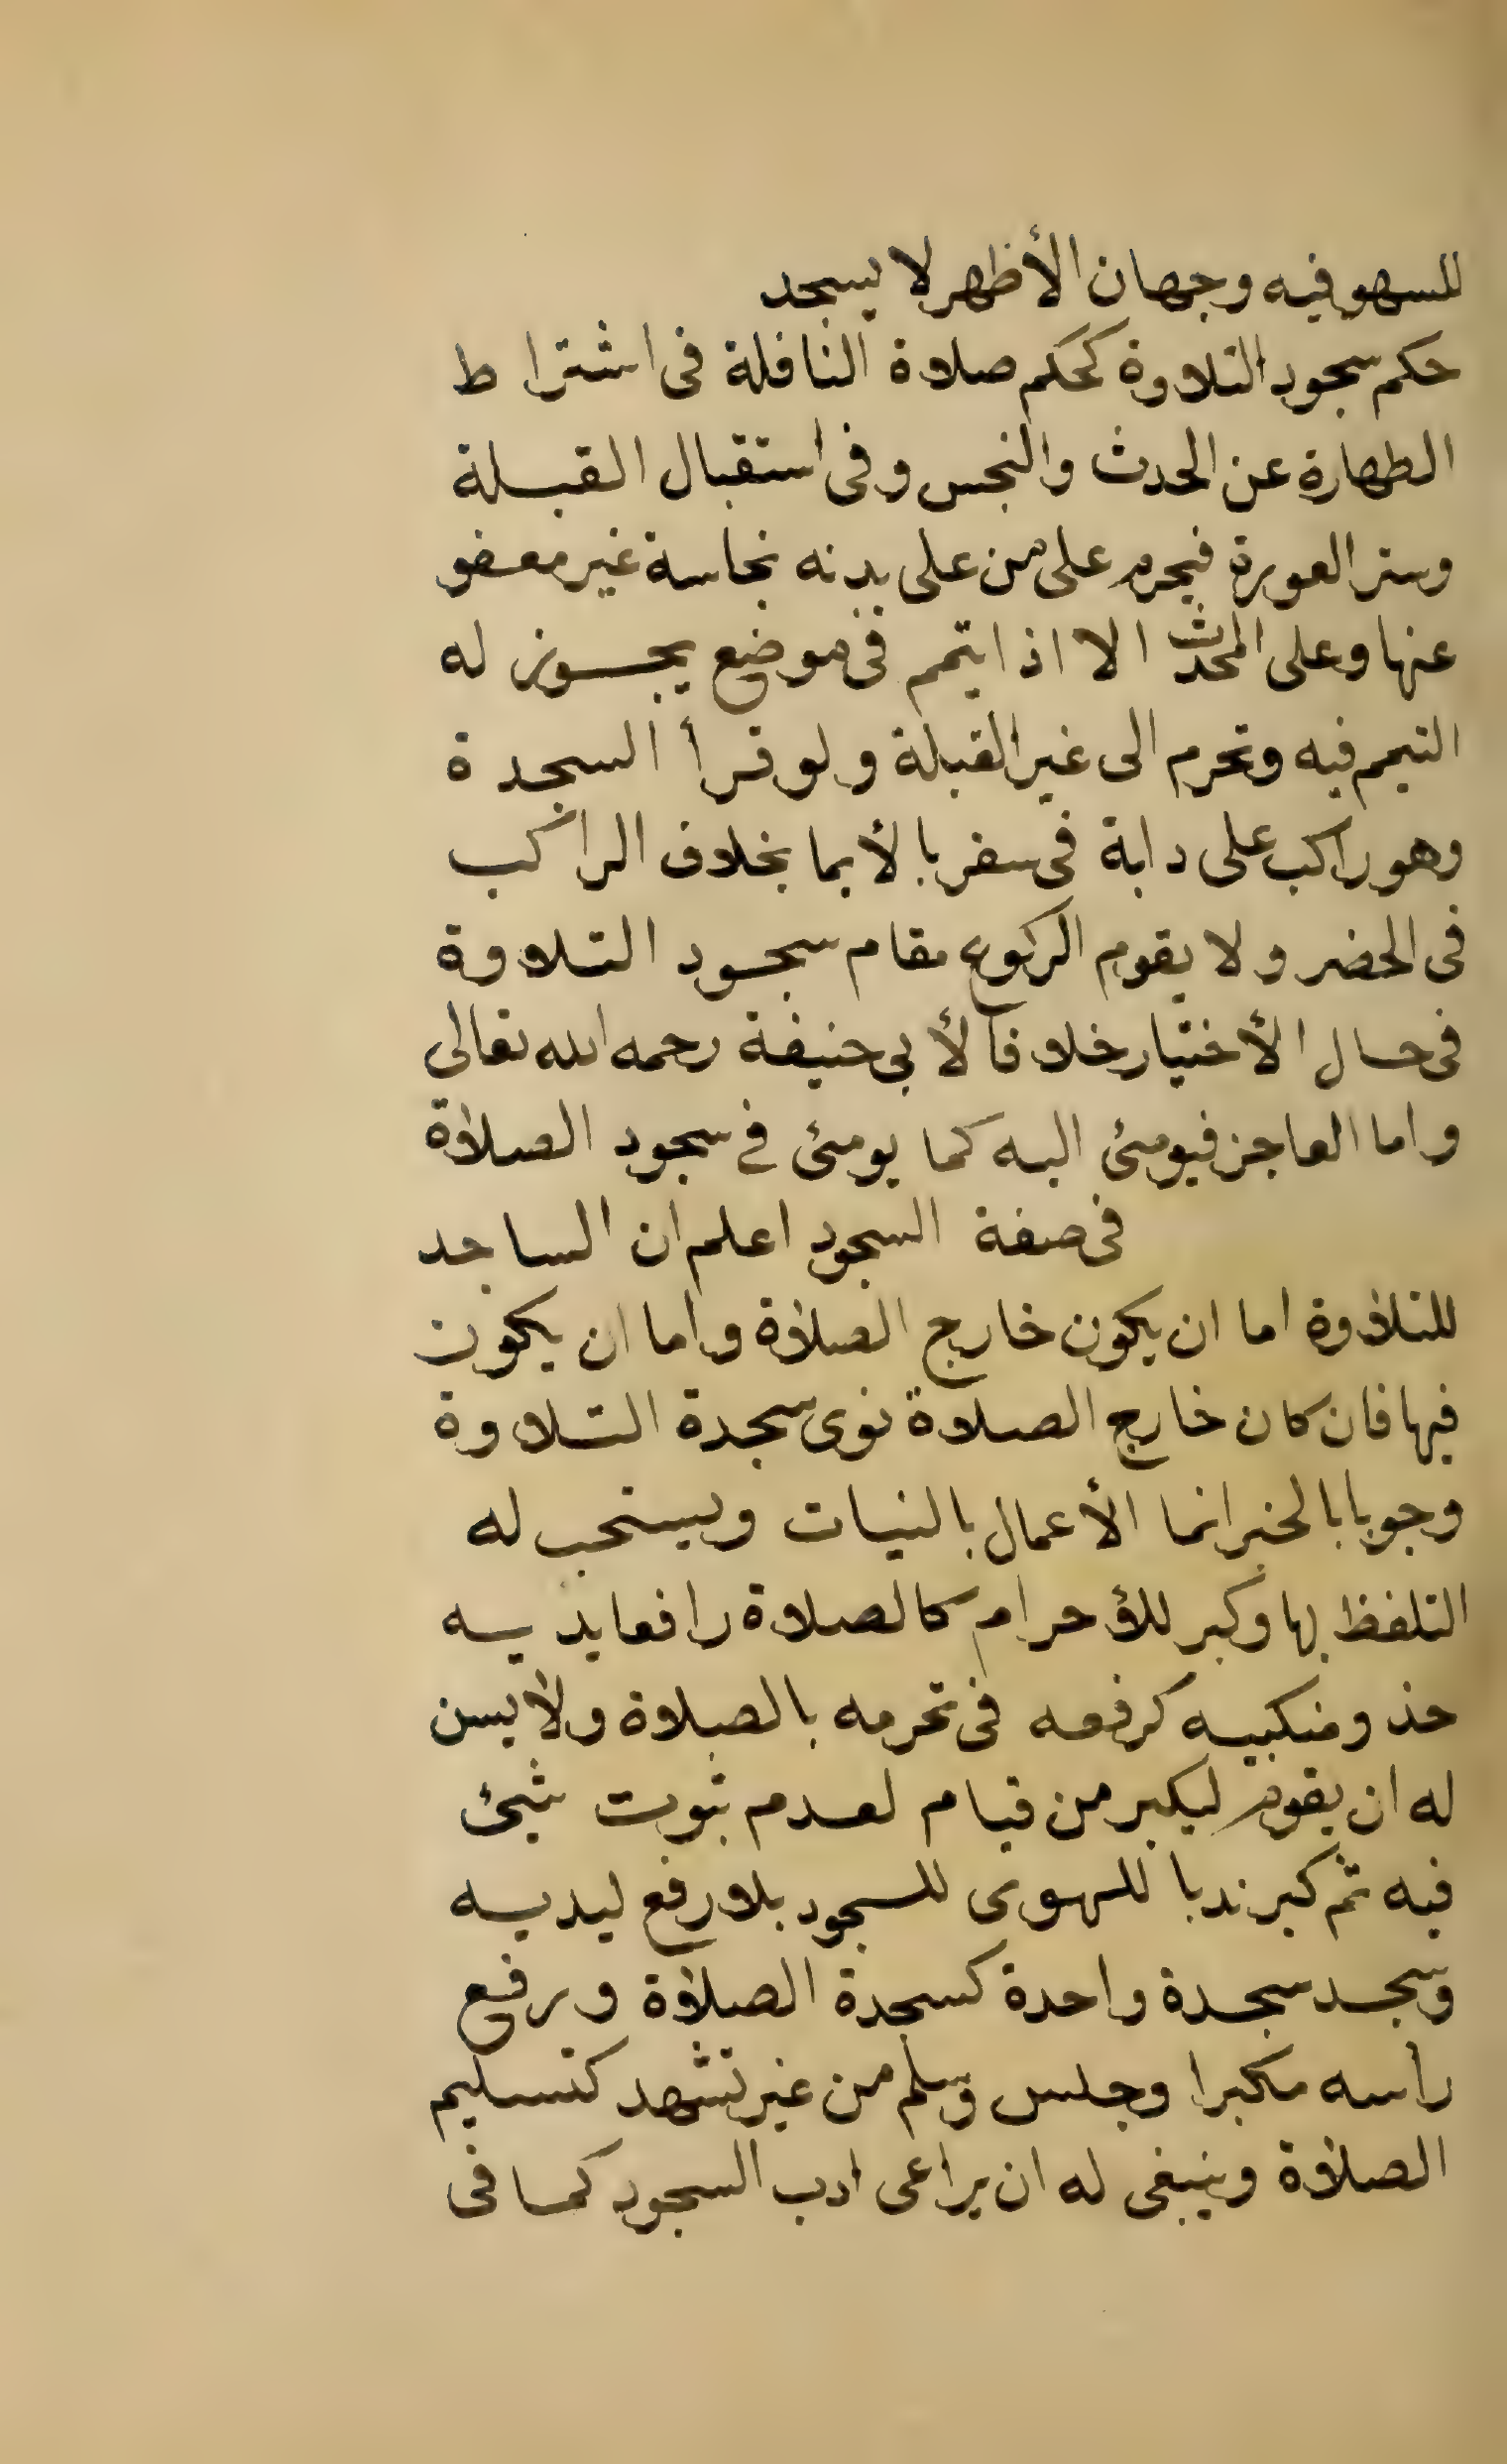 للسهو فيه وجهان الأظهر لا يسجد
حكم سجود التلاوة كحكم صلاة النافلة فى اشتراط
الطهارة عن الحدث والنجس وفى استقبال القبلة
وستر العورة فيحرم على من على بدنه نجاسة غير معفو
عنها وعلى المحدث الا اذا تيمم فى موضع يجوز له
التيمم فيه وتحرم الى غير القبلة ولو قرأ السجدة
وهو راكب على دابة فى سفر بالأيما بخلاف الراكب
فى الحضر ولا يقوم الركوع مقام سجود التلاوة
فى حال الأختيار خلافا لأبى حنيفة رحمه الله تعالى
واما العاجز فيومئ اليه كما يومئ فى سجود الصلاة
فى صفة السجود اعلم ان الساجد
للتلاوة اما ان يكون خارج الصلاة واما ان يكون
فيها فان كان خارج الصلاة نوى سجدة التلاوة
وجوبا بالخبر انما الأعمال بالنيات ويستحب له
التلفظ بها وكبر للأحرام كالصلاة رافعا يديه
حذو منكبيه كرفعه فى تحرمه بالصلاة ولا يسن
له ان يقوم ليكبر من قيام لعدم ثبوت شيئ
فيه ثم كبر ندبا للهوى للسجود بلا رفع ليديه
وسجد سجدة واحدة كسجدة الصلاة ورفع
رأسه مكبرا وجلس وسلم من غير تشهد كتسليم
الصلاة وينبغى له ان يراعى ادب السجود كما فى